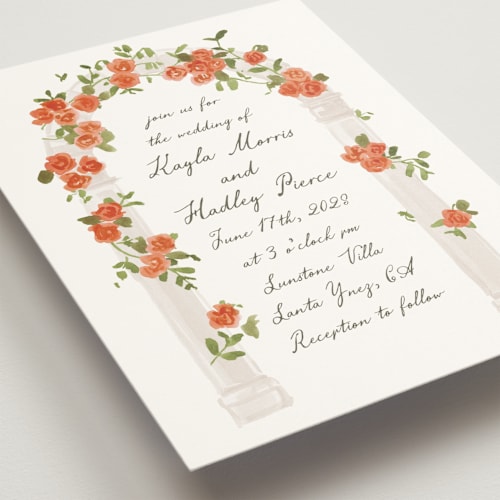 join us for
the wedding of
Kayla Morris
and
Hadley Pierce
June 17th, 2028
at 3 o'clock pm
Sunstone Villa
Santa Ynez, CA
Reception to follow